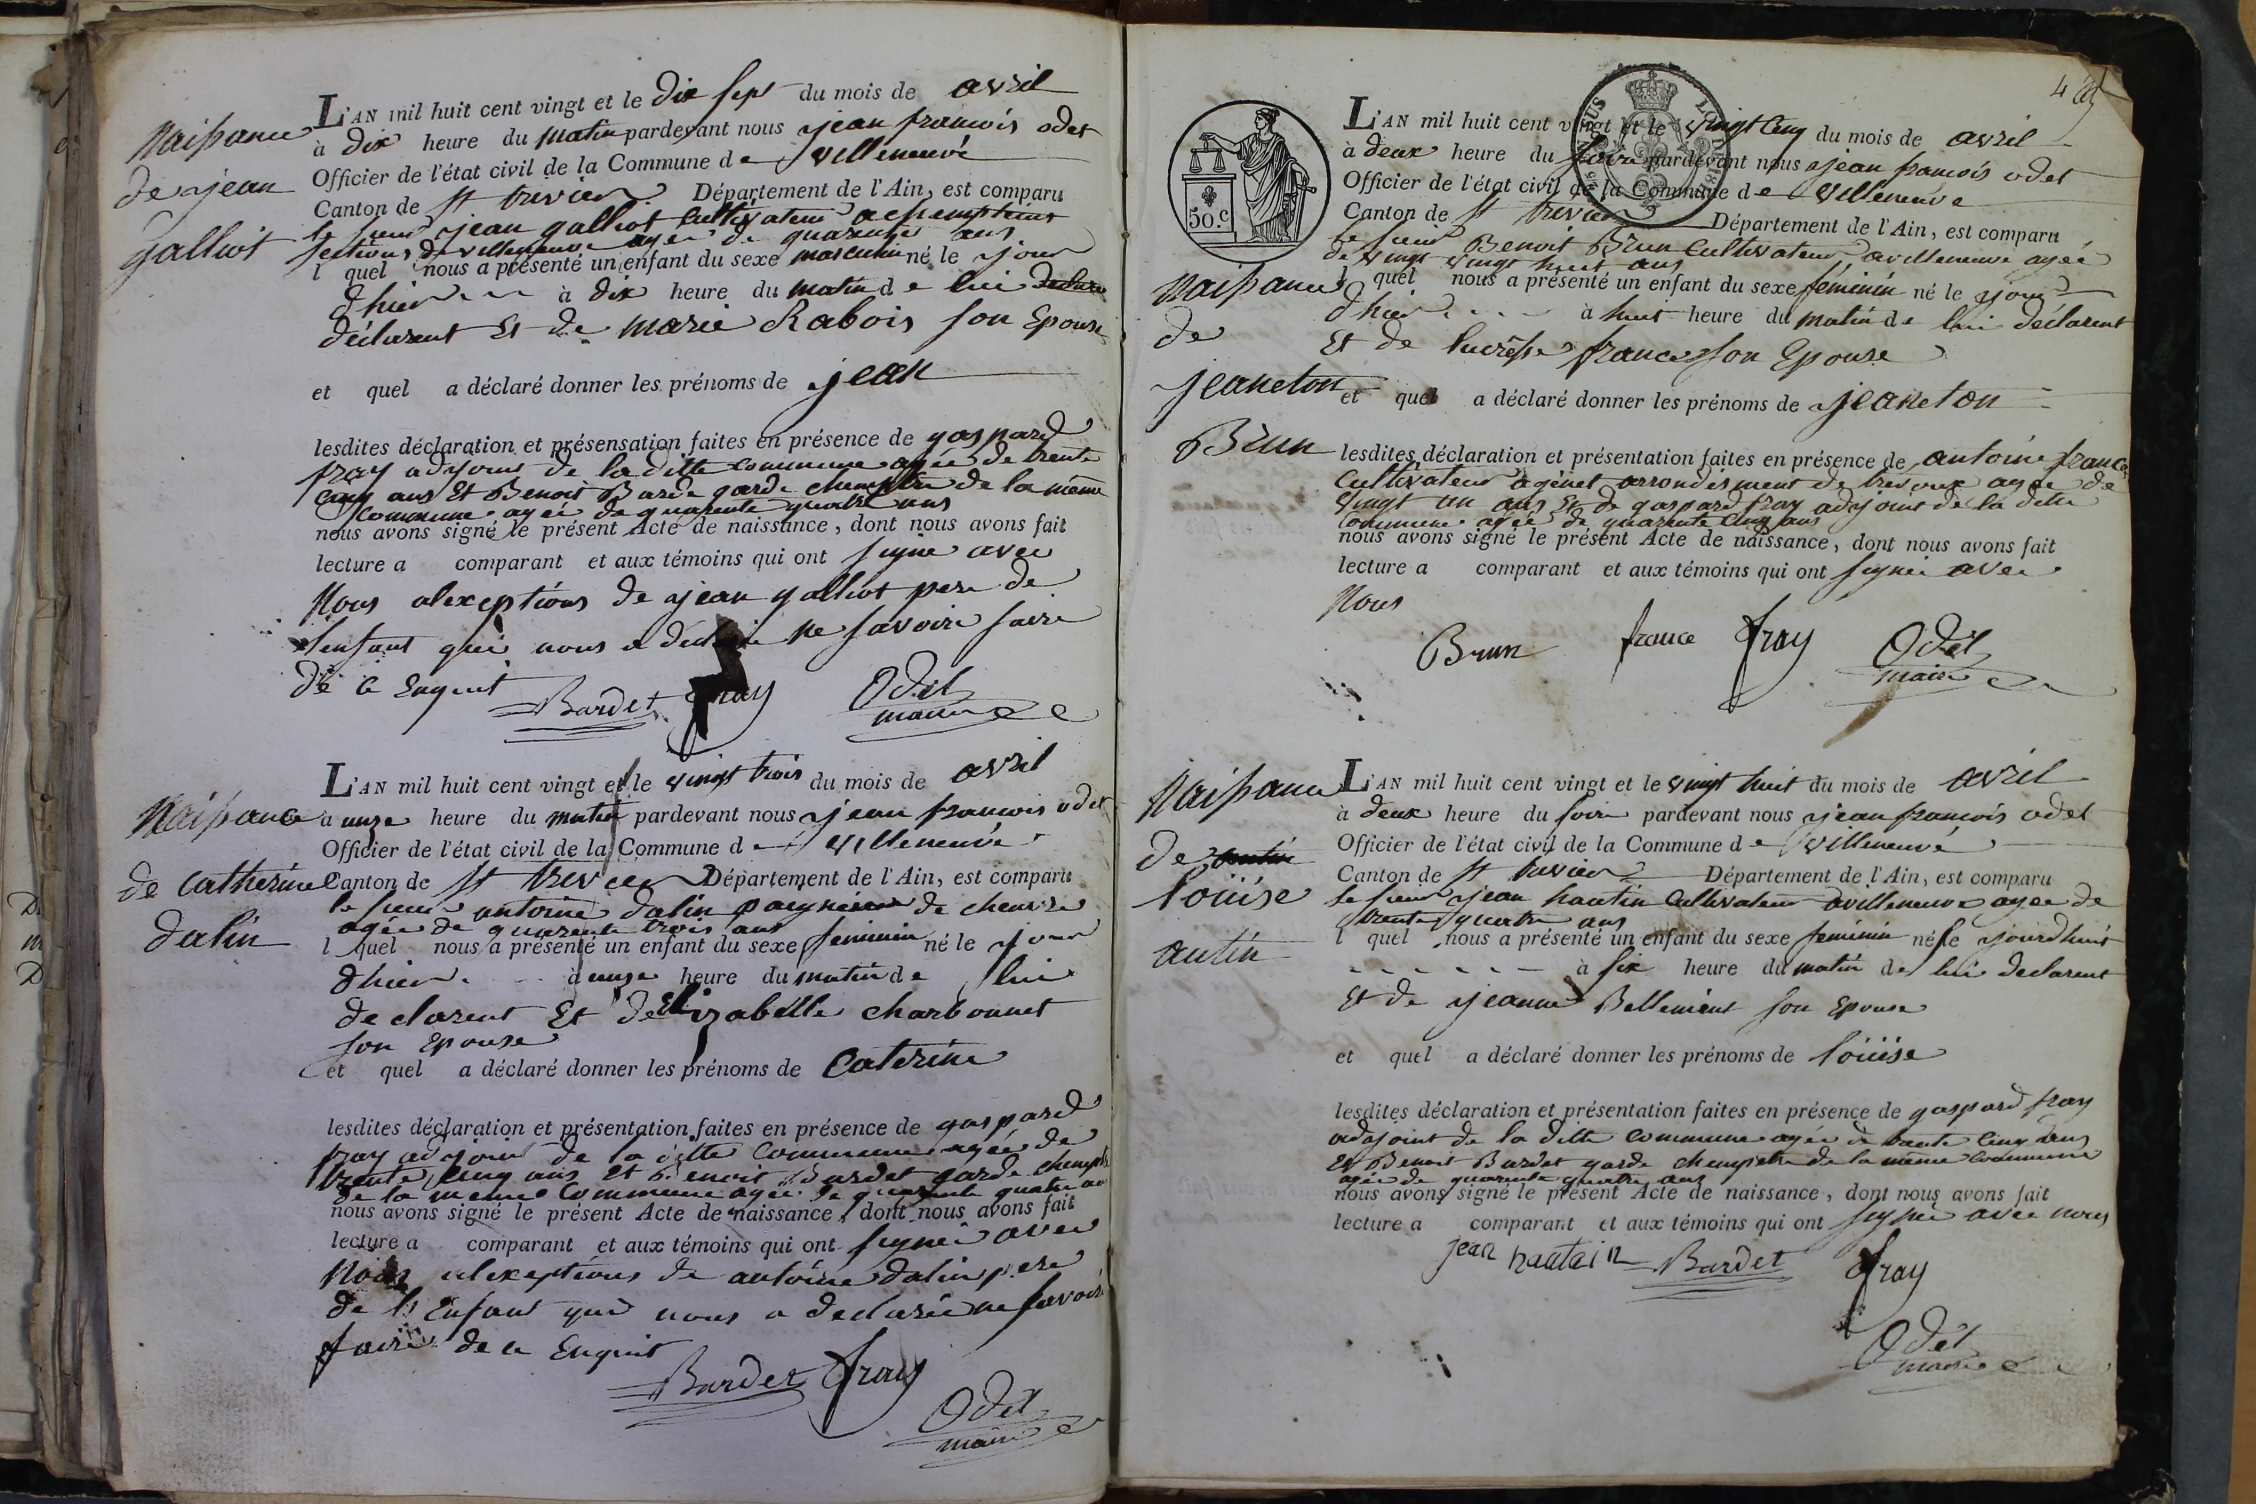 Naissance
de jean
galliot
L'AN mil huit cent vingt et le dix sept du mois de avril
à dix heure du matin pardevant nous jean francois odet
Officier de l'état civil de la Commune de villeneuve
Canton de st trivier Département de l'Ain, est comparu
le sieur jean galliot cultivateur
sections de villeneuve agée de quarente ans
l quel nous a présenté un enfant du sexe masculin né le jour
dhier à dix heure du matin de lui
déclarent Et de marie Rabois son Epouse
et quel a déclaré donner les prénoms de jean
lesdites déclaration et présensation faites en présence de gaspard
fray adjoins de la ditte commune agée de trente
cinq ans Et Benoit Barde garde chempetre de la même
commune agée de quarente quatre ans
nous avons signé le présent Acte de naissance, dont nous avons fait
lecture a comparant et aux témoins qui ont signe avec
Nous alexeptions de jean galliot pere de
lenfant qui nous a declaré ne savoire faire
de ce Enquit
Bardet fray Odet
maire
Naissance
de catherine
dalin
L'AN mil huit cent vingt et le vingt trois du mois de avril
a onze heure du matin pardevant nous jean francois odet
Officier de l'état civil de la Commune de villeneuve
Canton de st trivier Département de l'Ain, est comparu
le sieur antoine dalin de
agée de quarente trois ans
l quel nous a présenté un enfant du sexe feminin né le jour
dhier à onze heure du matin de lui
declarent Et de Elizabelle charbonnet
son Epouse
et quel a déclaré donner les prénoms de Caterine
lesdites déclaration et présentation faites en présence de gaspard
fray adjoint de la ditte Commune agée de
trente cinq ans Et Benoit Burdet garde chempetre
de la meme Commune agée de quarente quatre ans
nous avons signé le présent Acte de naissance, dont nous avons fait
lecture a comparant et aux témoins qui ont signé avec
Nous alexeptions de antoine dalin pere
de l Enfant qui nous a declarée ne savoire
faire de ce Enquit
Burdet fray
Odet
maire
4
50.c
L'AN mil huit cent vingt et le vingt cinq du mois de avril
à deux heure du soire pardevant nous jean francois odet
Officier de l'état civil de la Commune de villeneuve
Canton de st trivier Département de l'Ain, est comparu
le sieur Benoit Brun Cultivateur a villeneuve agée
de vingt vingt huit ans
Naissance
de
jeaneton
Brun
l quel nous a présenté un enfant du sexe féminin né le jour
dhier à huit heure du matin de lui déclarent
Et de lucrêsse france son Epouse
et quel a déclaré donner les prénoms de jeaneton
lesdites déclaration et présentation faites en présence de antoine france
Cultivateur agénet arrondisment de trevoux agée de
vingt un ans Et de gaspard fray adjoint de la ditte
commune agée de quarente cinq ans
nous avons signé le présent Acte de naissance, dont nous avons fait
lecture a comparant et aux témoins qui ont signée avec
Nous
Brun france fray Odet
maire
Naissance
de
loüise
autin
L'AN mil huit cent vingt et le vingt huit du mois de avril
à deux heure du soire pardevant nous jean francois odet
Officier de l'état civil de la Commune de villeneuve
Canton de st trivier Département de l'Ain, est comparu
le sieur jean hautin Cultivateur a villeneuve agee de
trente quatre ans
l quel nous a présenté un enfant du sexe feminin né le jourdhuit
à six heure du matin de lui declarent
Et de jeanne Bellement son Epouse
et quel a déclaré donner les prénoms de loüise
lesdites déclaration et présentation faites en présence de gaspard fray
adajoint de la ditte commune agée de trante cinq ans
Et Benoit Burdet garde chempetre de la même commune
agée de quarente quatre ans
nous avons signé le présent Acte de naissance, dont nous avons fait
lecture a comparant et aux témoins qui ont signée avec nous
jean hautain Burdet fray
Odet
maire